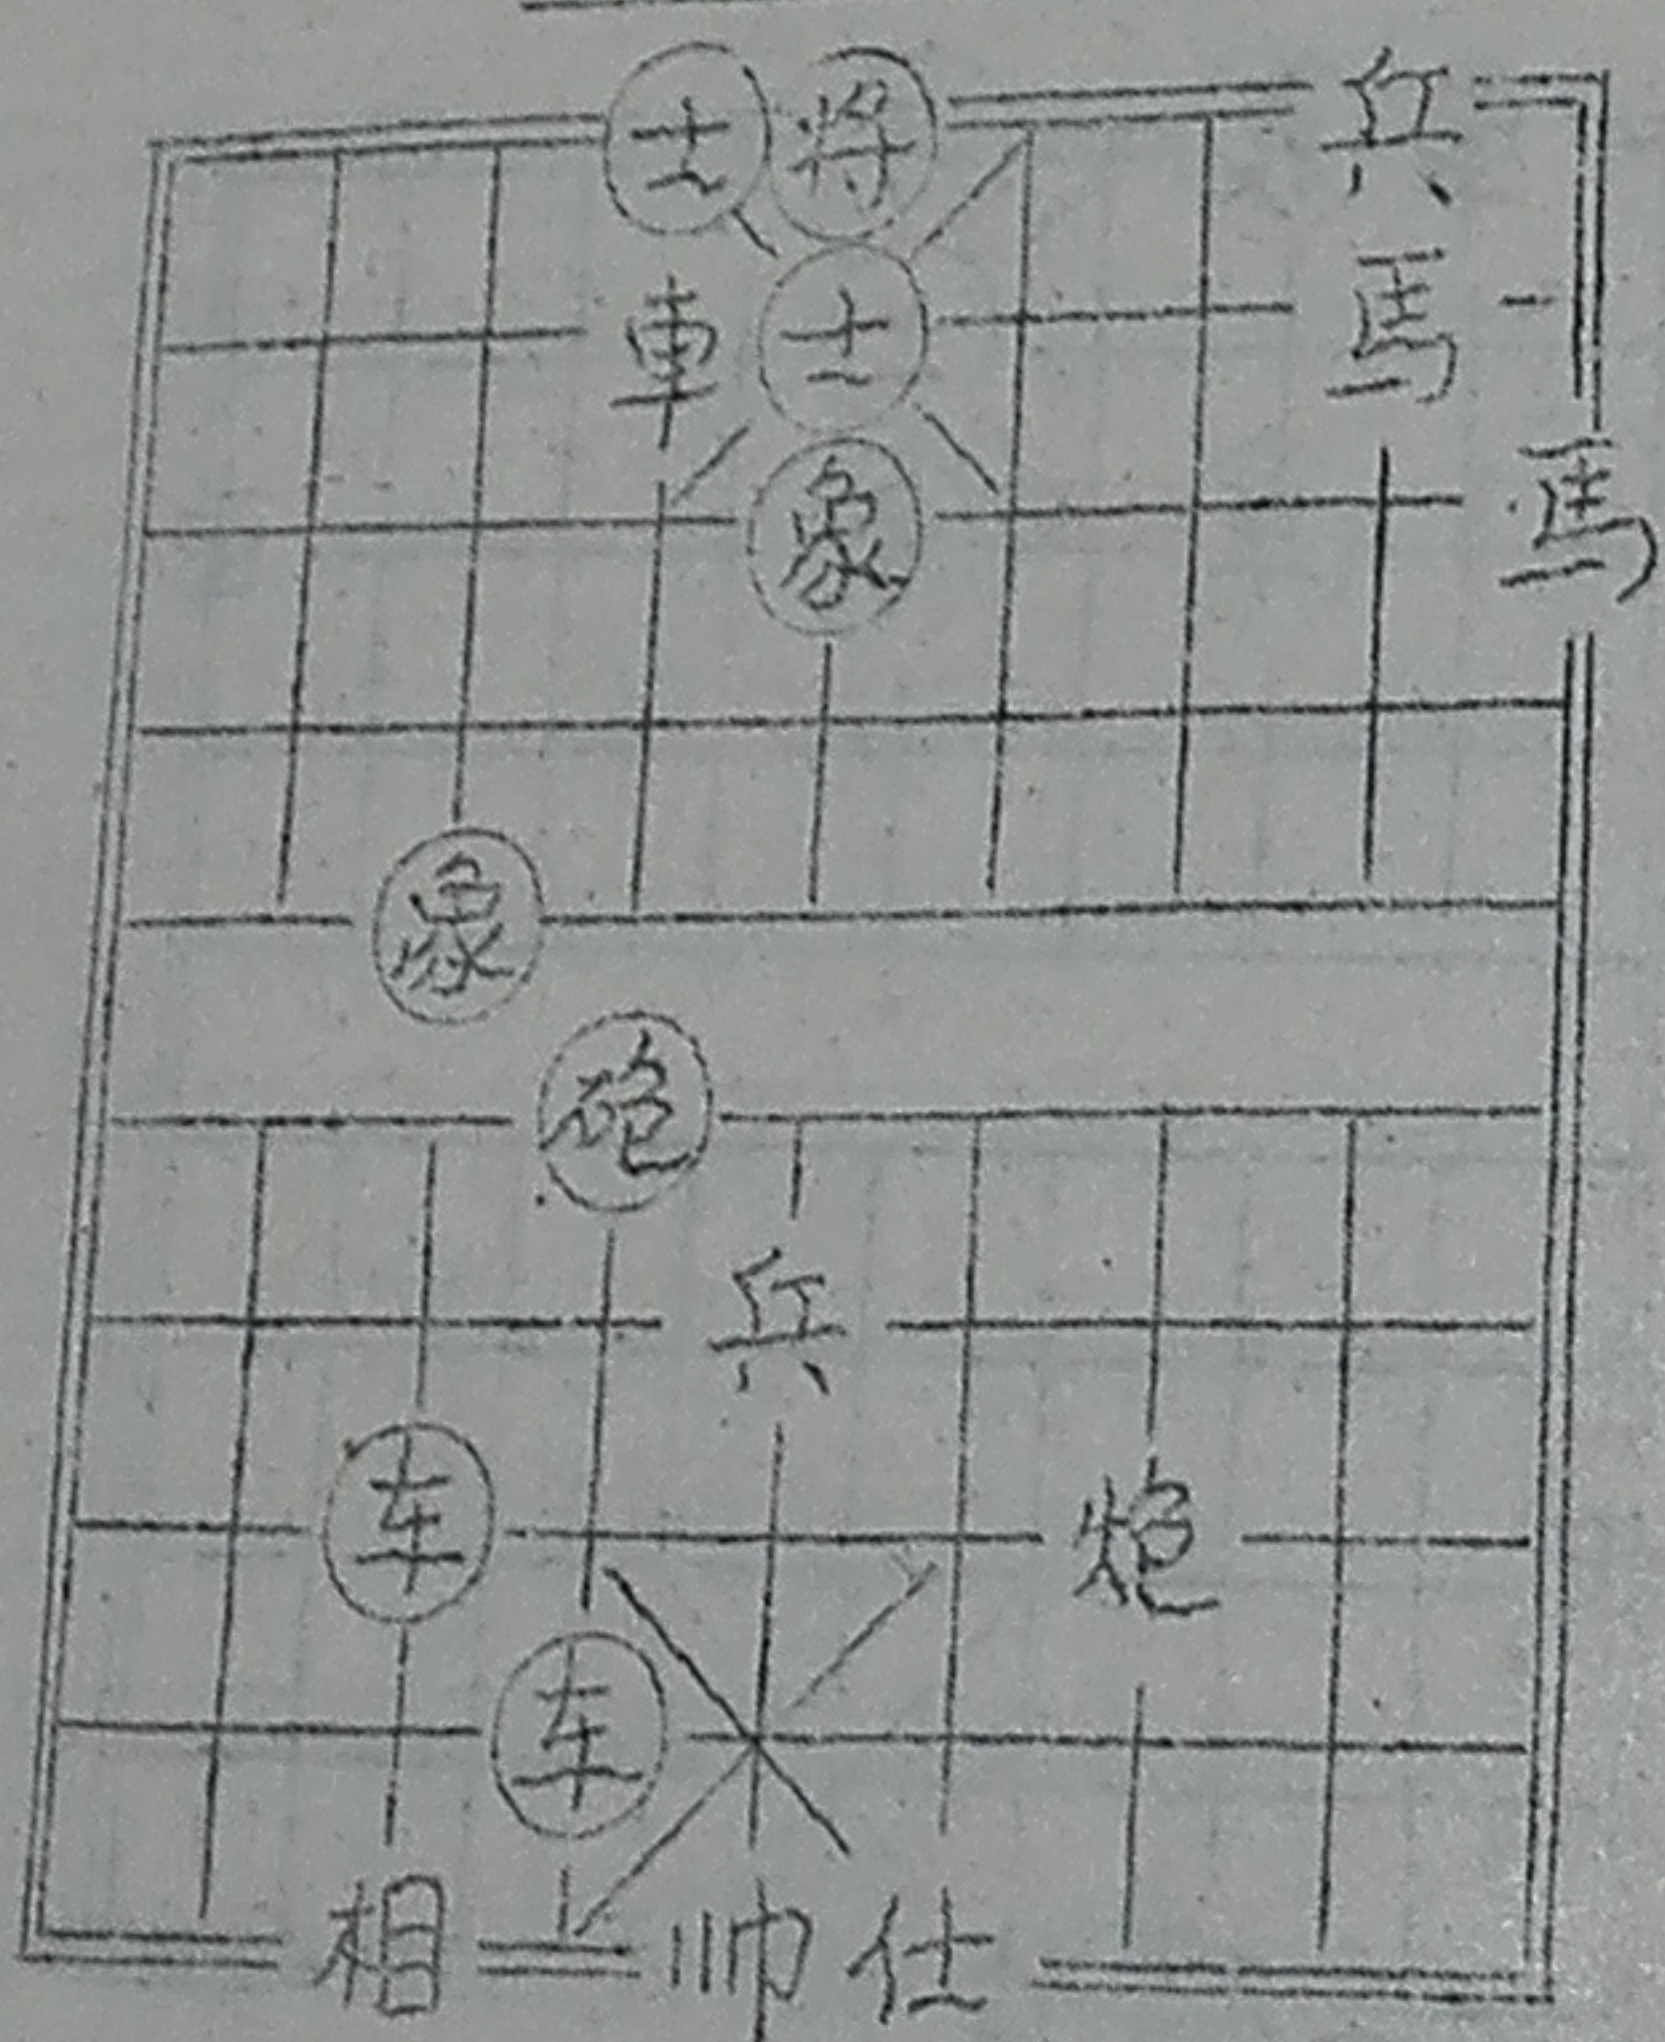 士将兵
車士馬
象馬
象
砲
兵
车炮
车
相帅仕